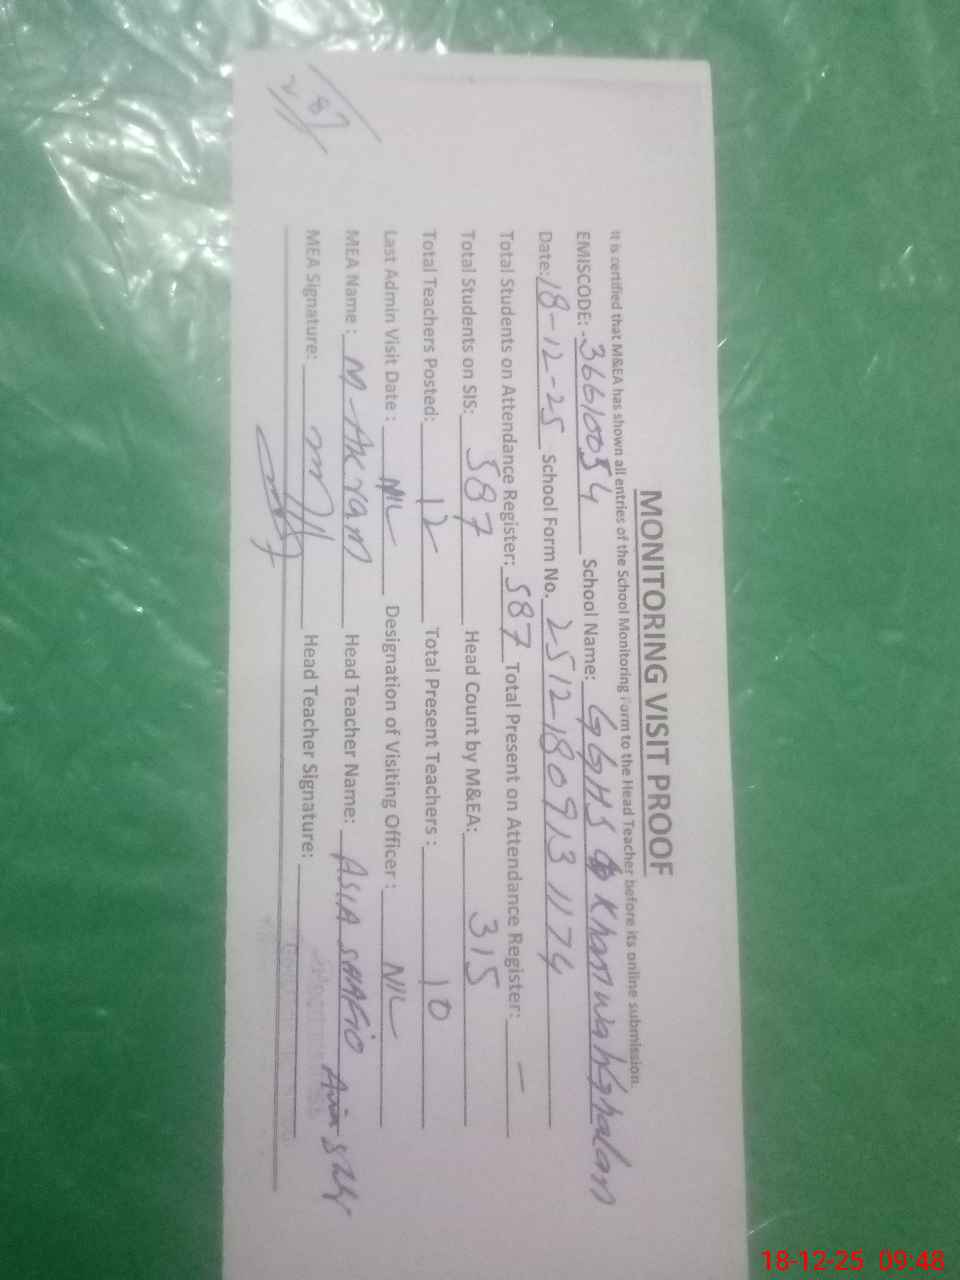 MONITORING VISIT PROOF
It is certified that M&EA has shown all entries of the School Monitoring Form to the Head Teacher before its online submission.
EMISCODE: -36610054 School Name: GGHS Khanwah Ghalan
Date: 18-12-25 School Form No. 2512180913 1174
Total Students on Attendance Register: 587 Total Present on Attendance Register: —
Total Students on SIS: 587 Head Count by M&EA: 315
Total Teachers Posted: 12 Total Present Teachers : 10
Last Admin Visit Date : NIL Designation of Visiting Officer : NIL
MEA Name : M-Akram Head Teacher Name: ASIA SHAFIQ
MEA Signature: Head Teacher Signature:
18-12-25 09:48